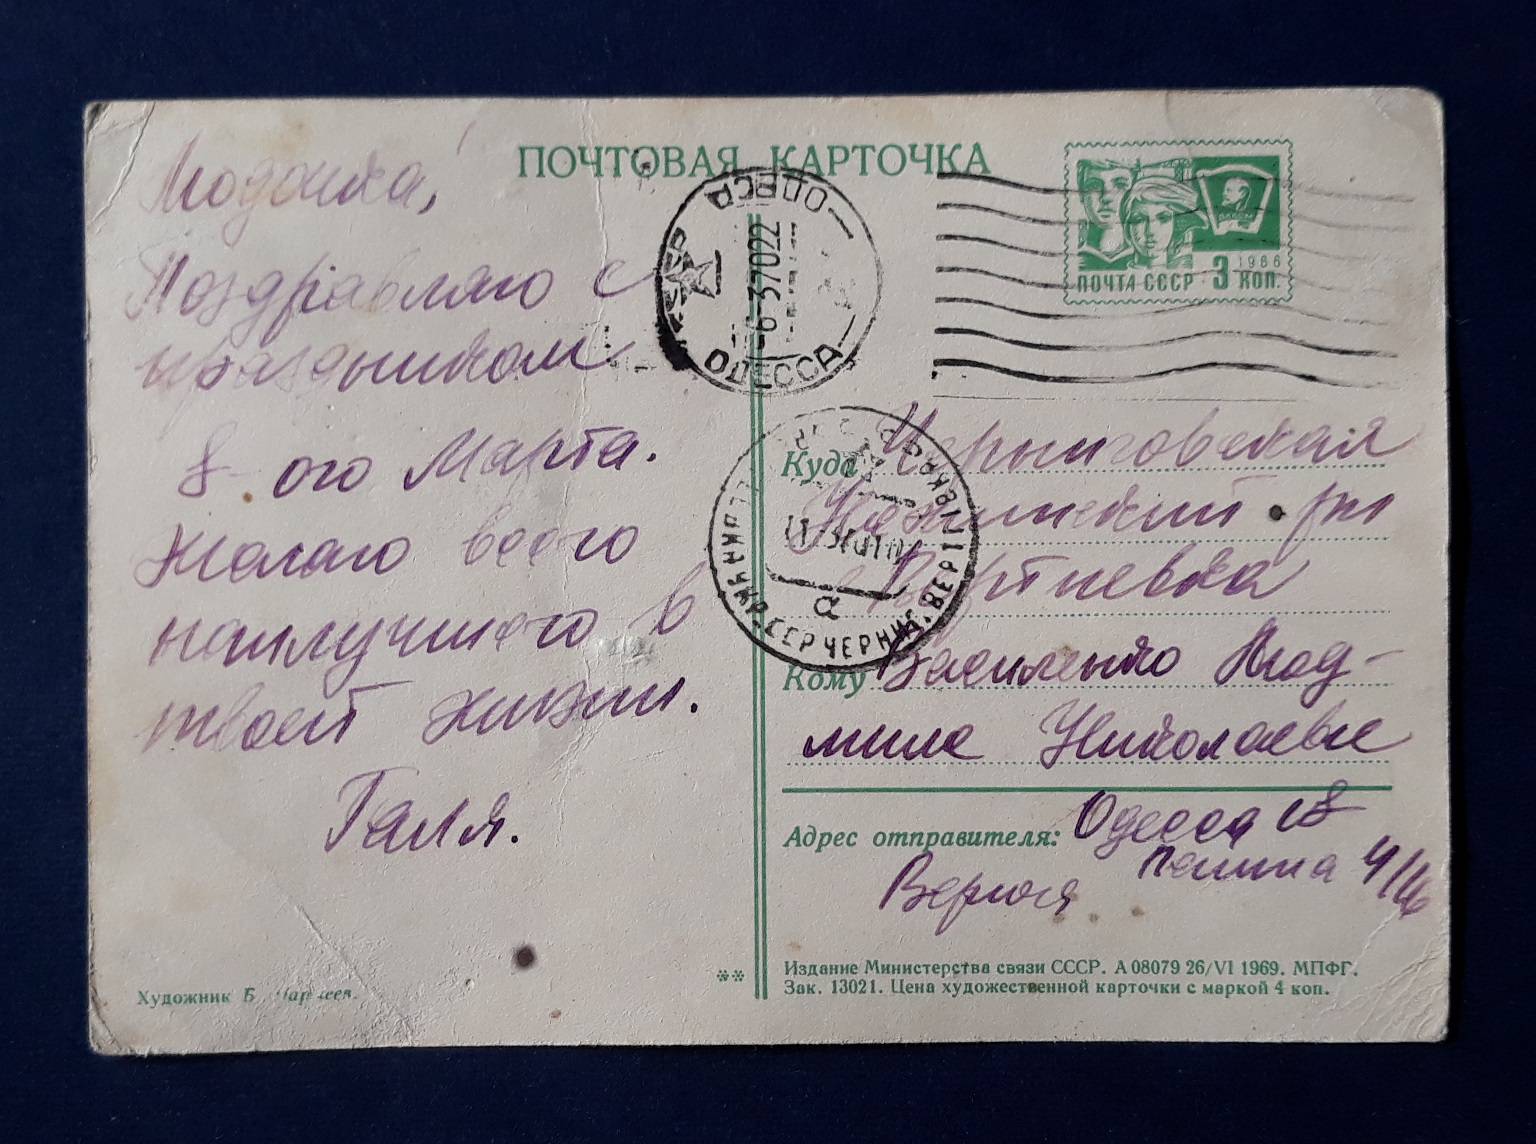 ПОЧТОВАЯ КАРТОЧКА
Людочка!
Поздравляю с
праздником
8-ого Марта.
Желаю всего
наилучшего в
твоей жизни.
Галя.
Художник Б.
ОДЕССА
-6-37022
ОДЕССА
1966
ПОЧТА СССР 3 КОП.
Куда Черниговская
Нежинский р-н
Вертиевка
УКР. ССР ЧЕРНИГ. ВЕРТИЕВКА
а
Кому Василенко Люд-
миле Николаевне
Адрес отправителя: Одесса 18
4/16
**
Издание Министерства связи СССР. А 08079 26/VI 1969. МПФГ.
Зак. 13021. Цена художественной карточки с маркой 4 коп.